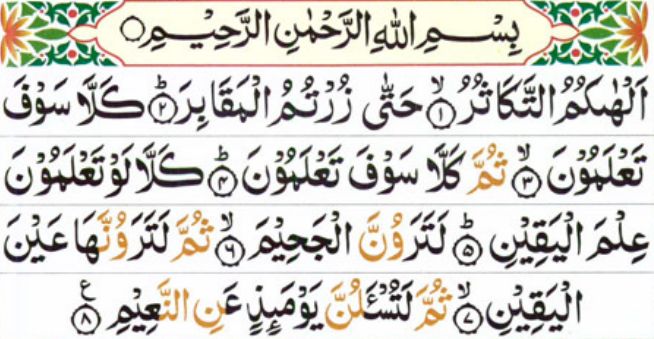 بِسْمِ اللهِ الرَّحْمٰنِ الرَّحِيْمِ
اَلْهٰىكُمُ التَّكَاثُرُ ۙ﴿۱﴾ حَتّٰى زُرْتُمُ الْمَقَابِرَ ؕ﴿۲﴾ كَلَّا سَوْفَ
تَعْلَمُوْنَ ۙ﴿۳﴾ ثُمَّ كَلَّا سَوْفَ تَعْلَمُوْنَ ؕ﴿۴﴾ كَلَّا لَوْ تَعْلَمُوْنَ
عِلْمَ الْيَقِيْنِ ؕ﴿۵﴾ لَتَرَوُنَّ الْجَحِيْمَ ۙ﴿۶﴾ ثُمَّ لَتَرَوُنَّهَا عَيْنَ
الْيَقِيْنِ ۙ﴿۷﴾ ثُمَّ لَتُسْـَٔلُنَّ يَوْمَىِٕذٍ عَنِ النَّعِيْمِ ﴿۸﴾ ع